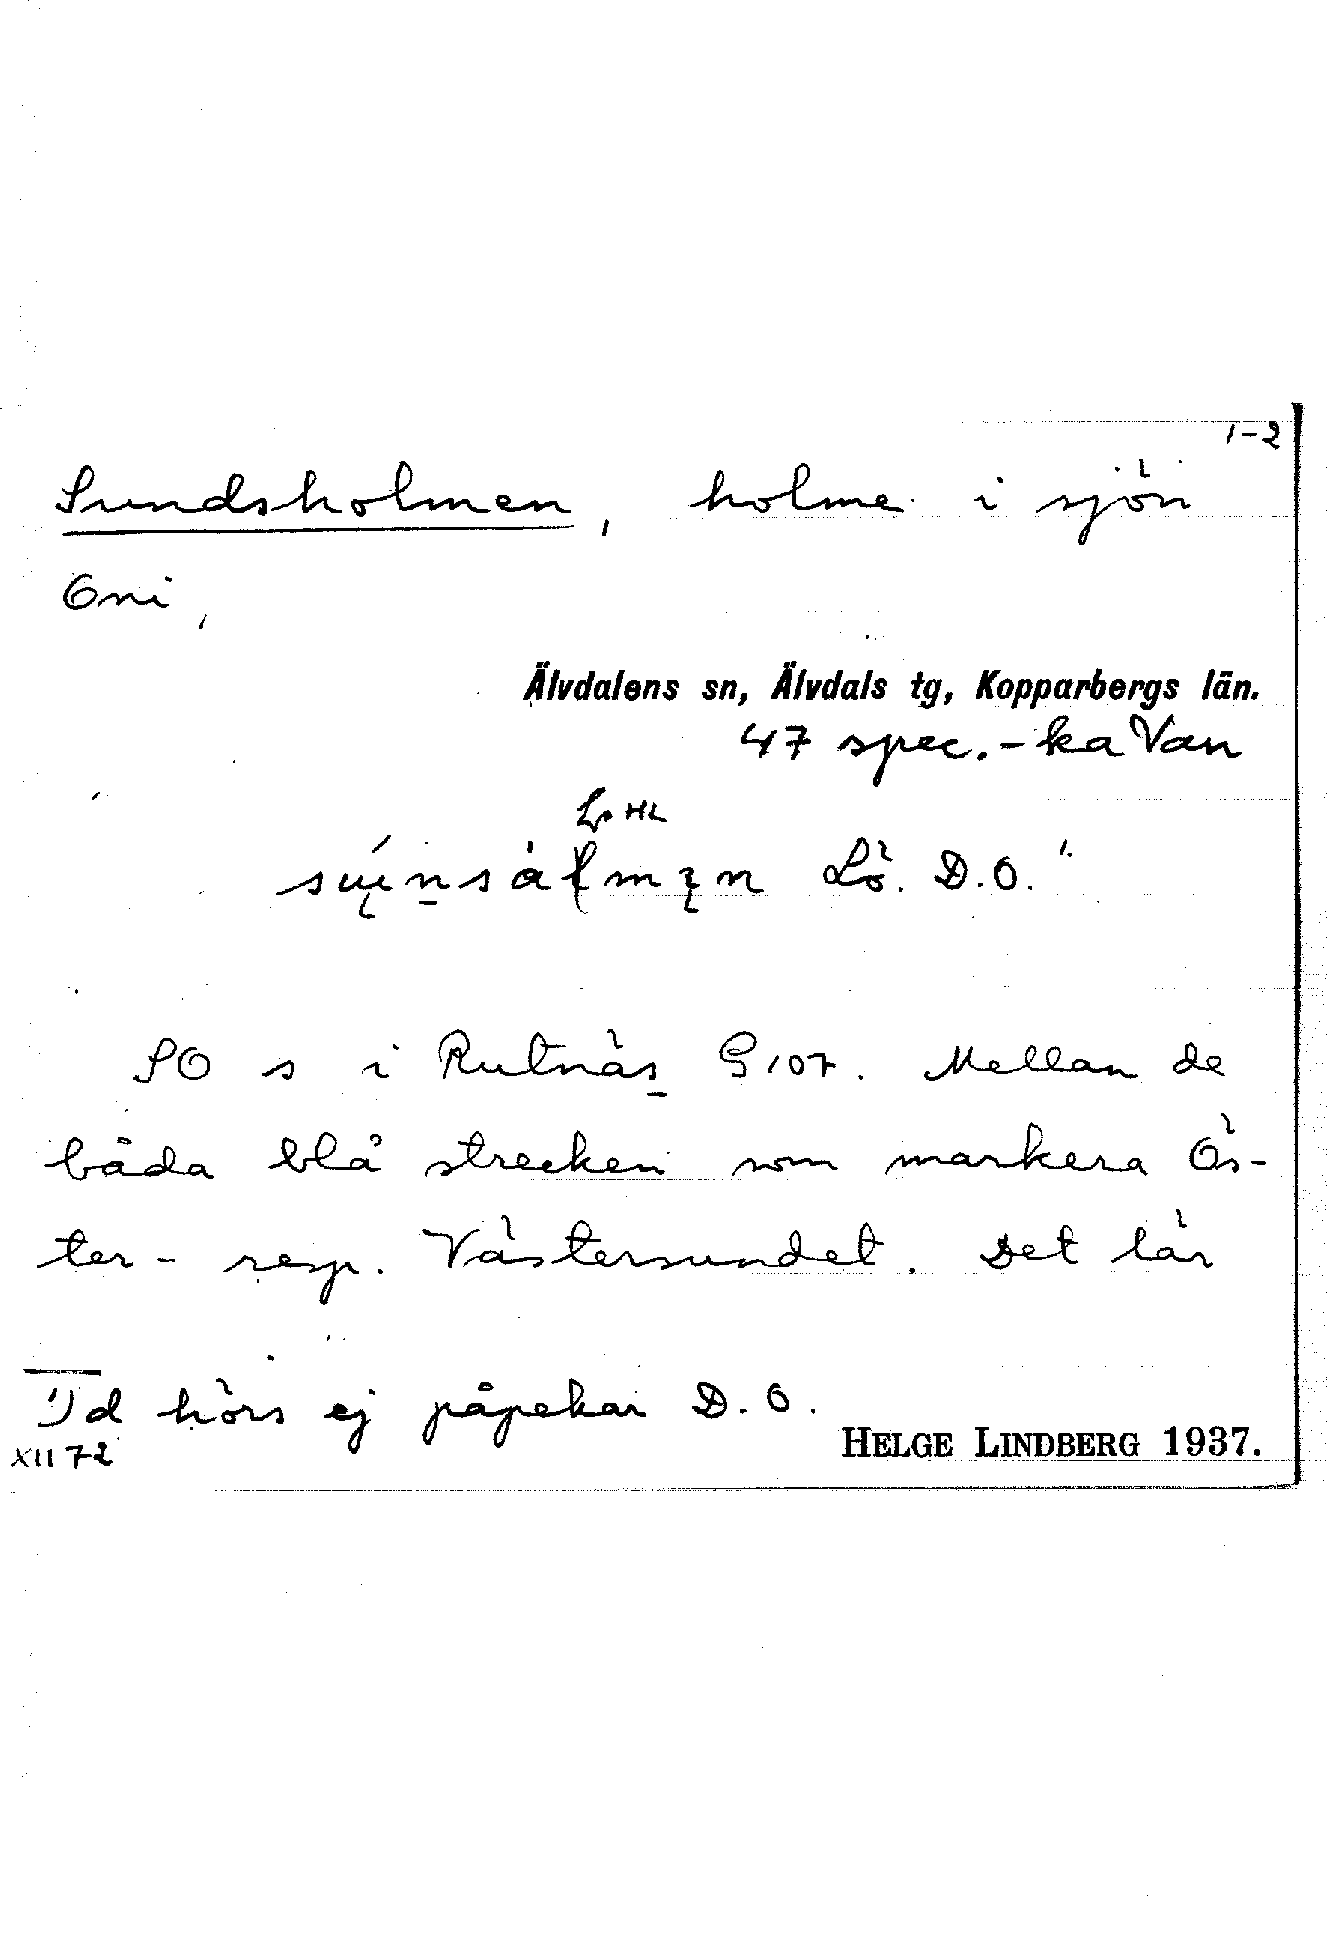 1-2
Sundsholmen, holme i sjön
Oni,
Älvdalens sn, Älvdals tg, Kopparbergs län.
47 spec.-ka Van
HL
Lö. D.O.¹
SO s i Rutnäs G107. Mellan de
båda blå strecken som markera Ös-
ter- resp. Västersundet. Det lär
¹) d hörs ej påpekar D.O.
XII 72
HELGE LINDBERG 1937.